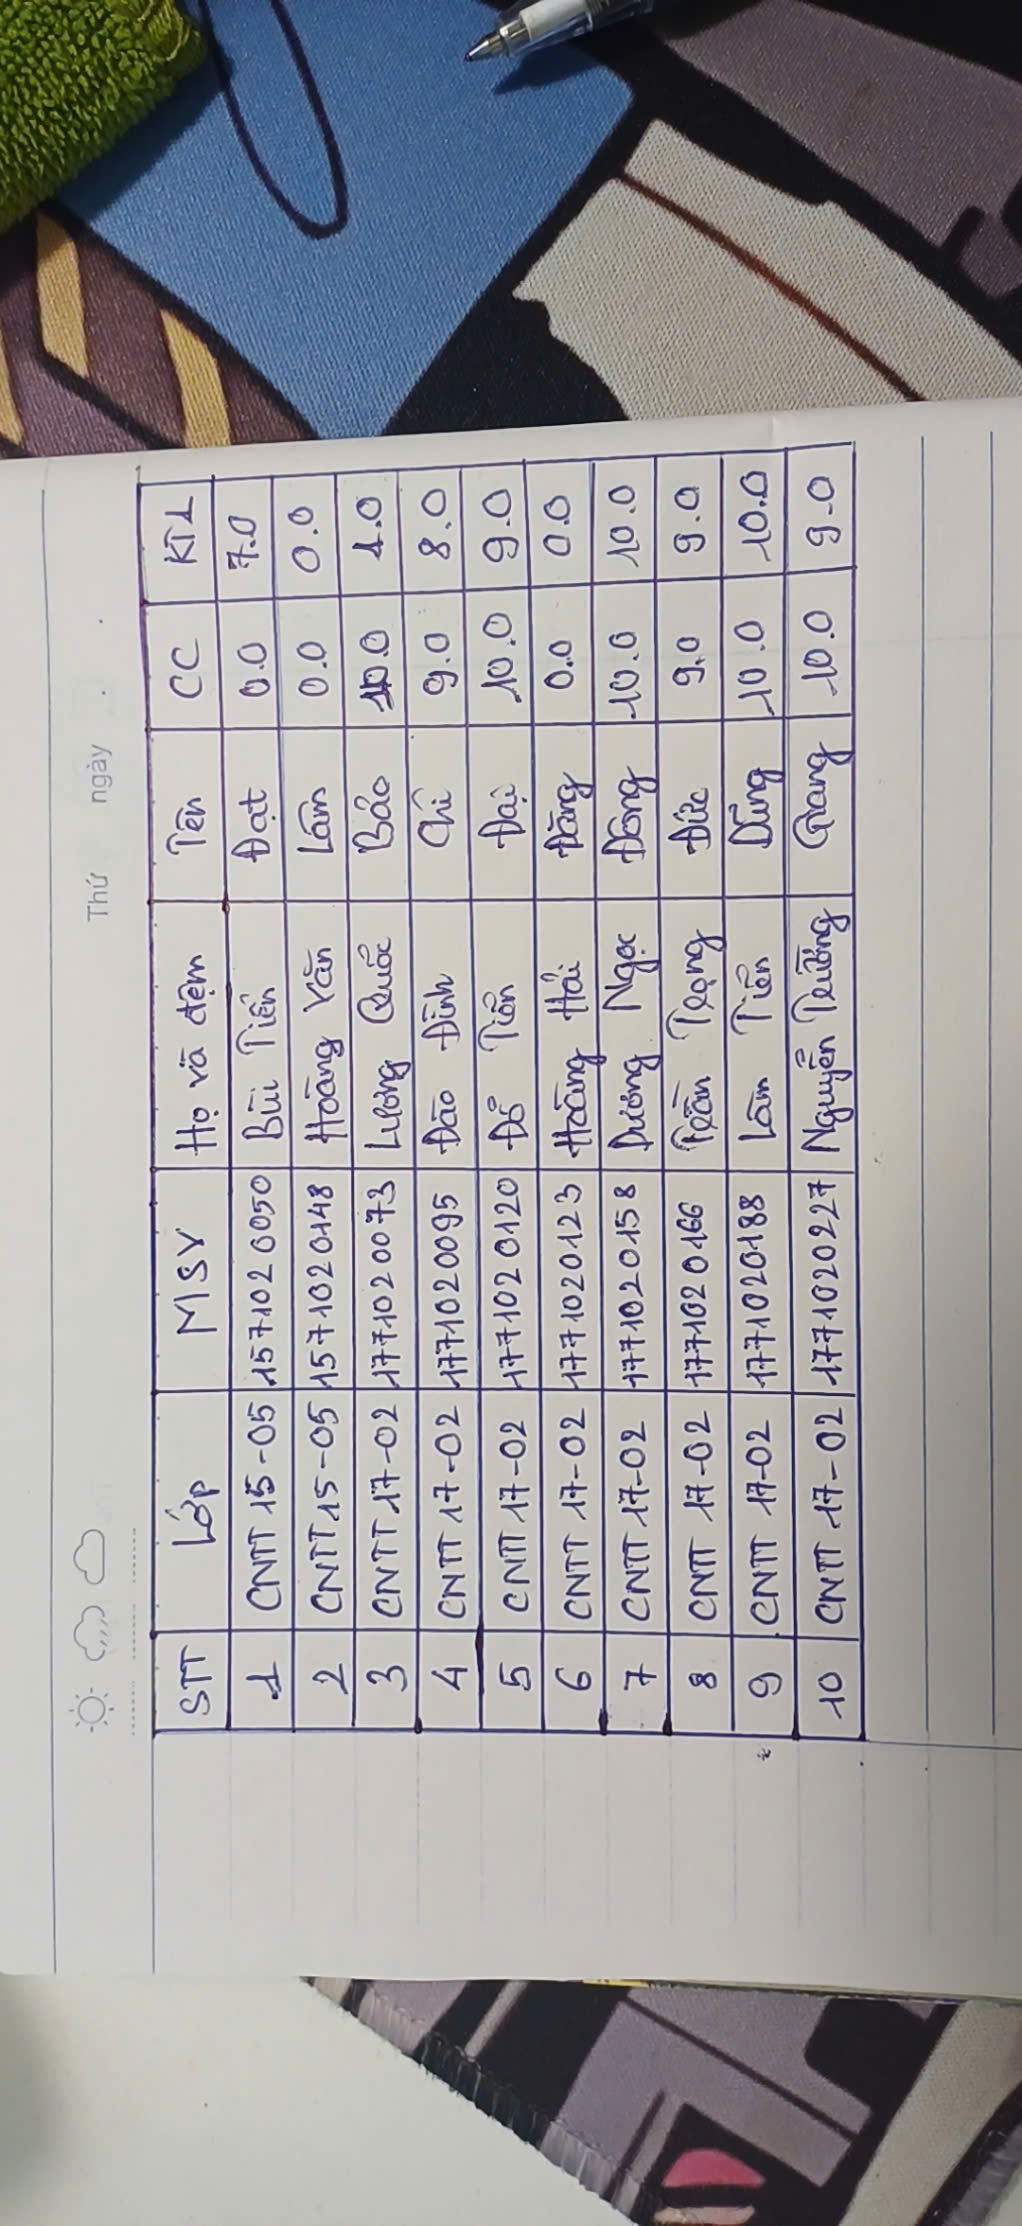 Thứ ngày . .
STT Lớp MSV Họ và đệm Tên CC KT1
1 CNTT 15-05 1571020050 Bùi Tiến Đạt 0.0 7.0
2 CNTT 15-05 1571020148 Hoàng Văn Lâm 0.0 0.0
3 CNTT 17-02 1771020073 Lương Quốc Bảo 10.0 1.0
4 CNTT 17-02 1771020095 Đào Đình Chí 9.0 8.0
5 CNTT 17-02 1771020120 Đỗ Tiến Đại 10.0 9.0
6 CNTT 17-02 1771020123 Hoàng Hải Đăng 0.0 0.0
7 CNTT 17-02 1771020158 Dương Ngọc Đông 10.0 10.0
8 CNTT 17-02 1771020166 Trần Trọng Đức 9.0 9.0
9 CNTT 17-02 1771020188 Lâm Tiến Dũng 10.0 10.0
10 CNTT 17-02 1771020227 Nguyễn Trường Giang 10.0 9.0